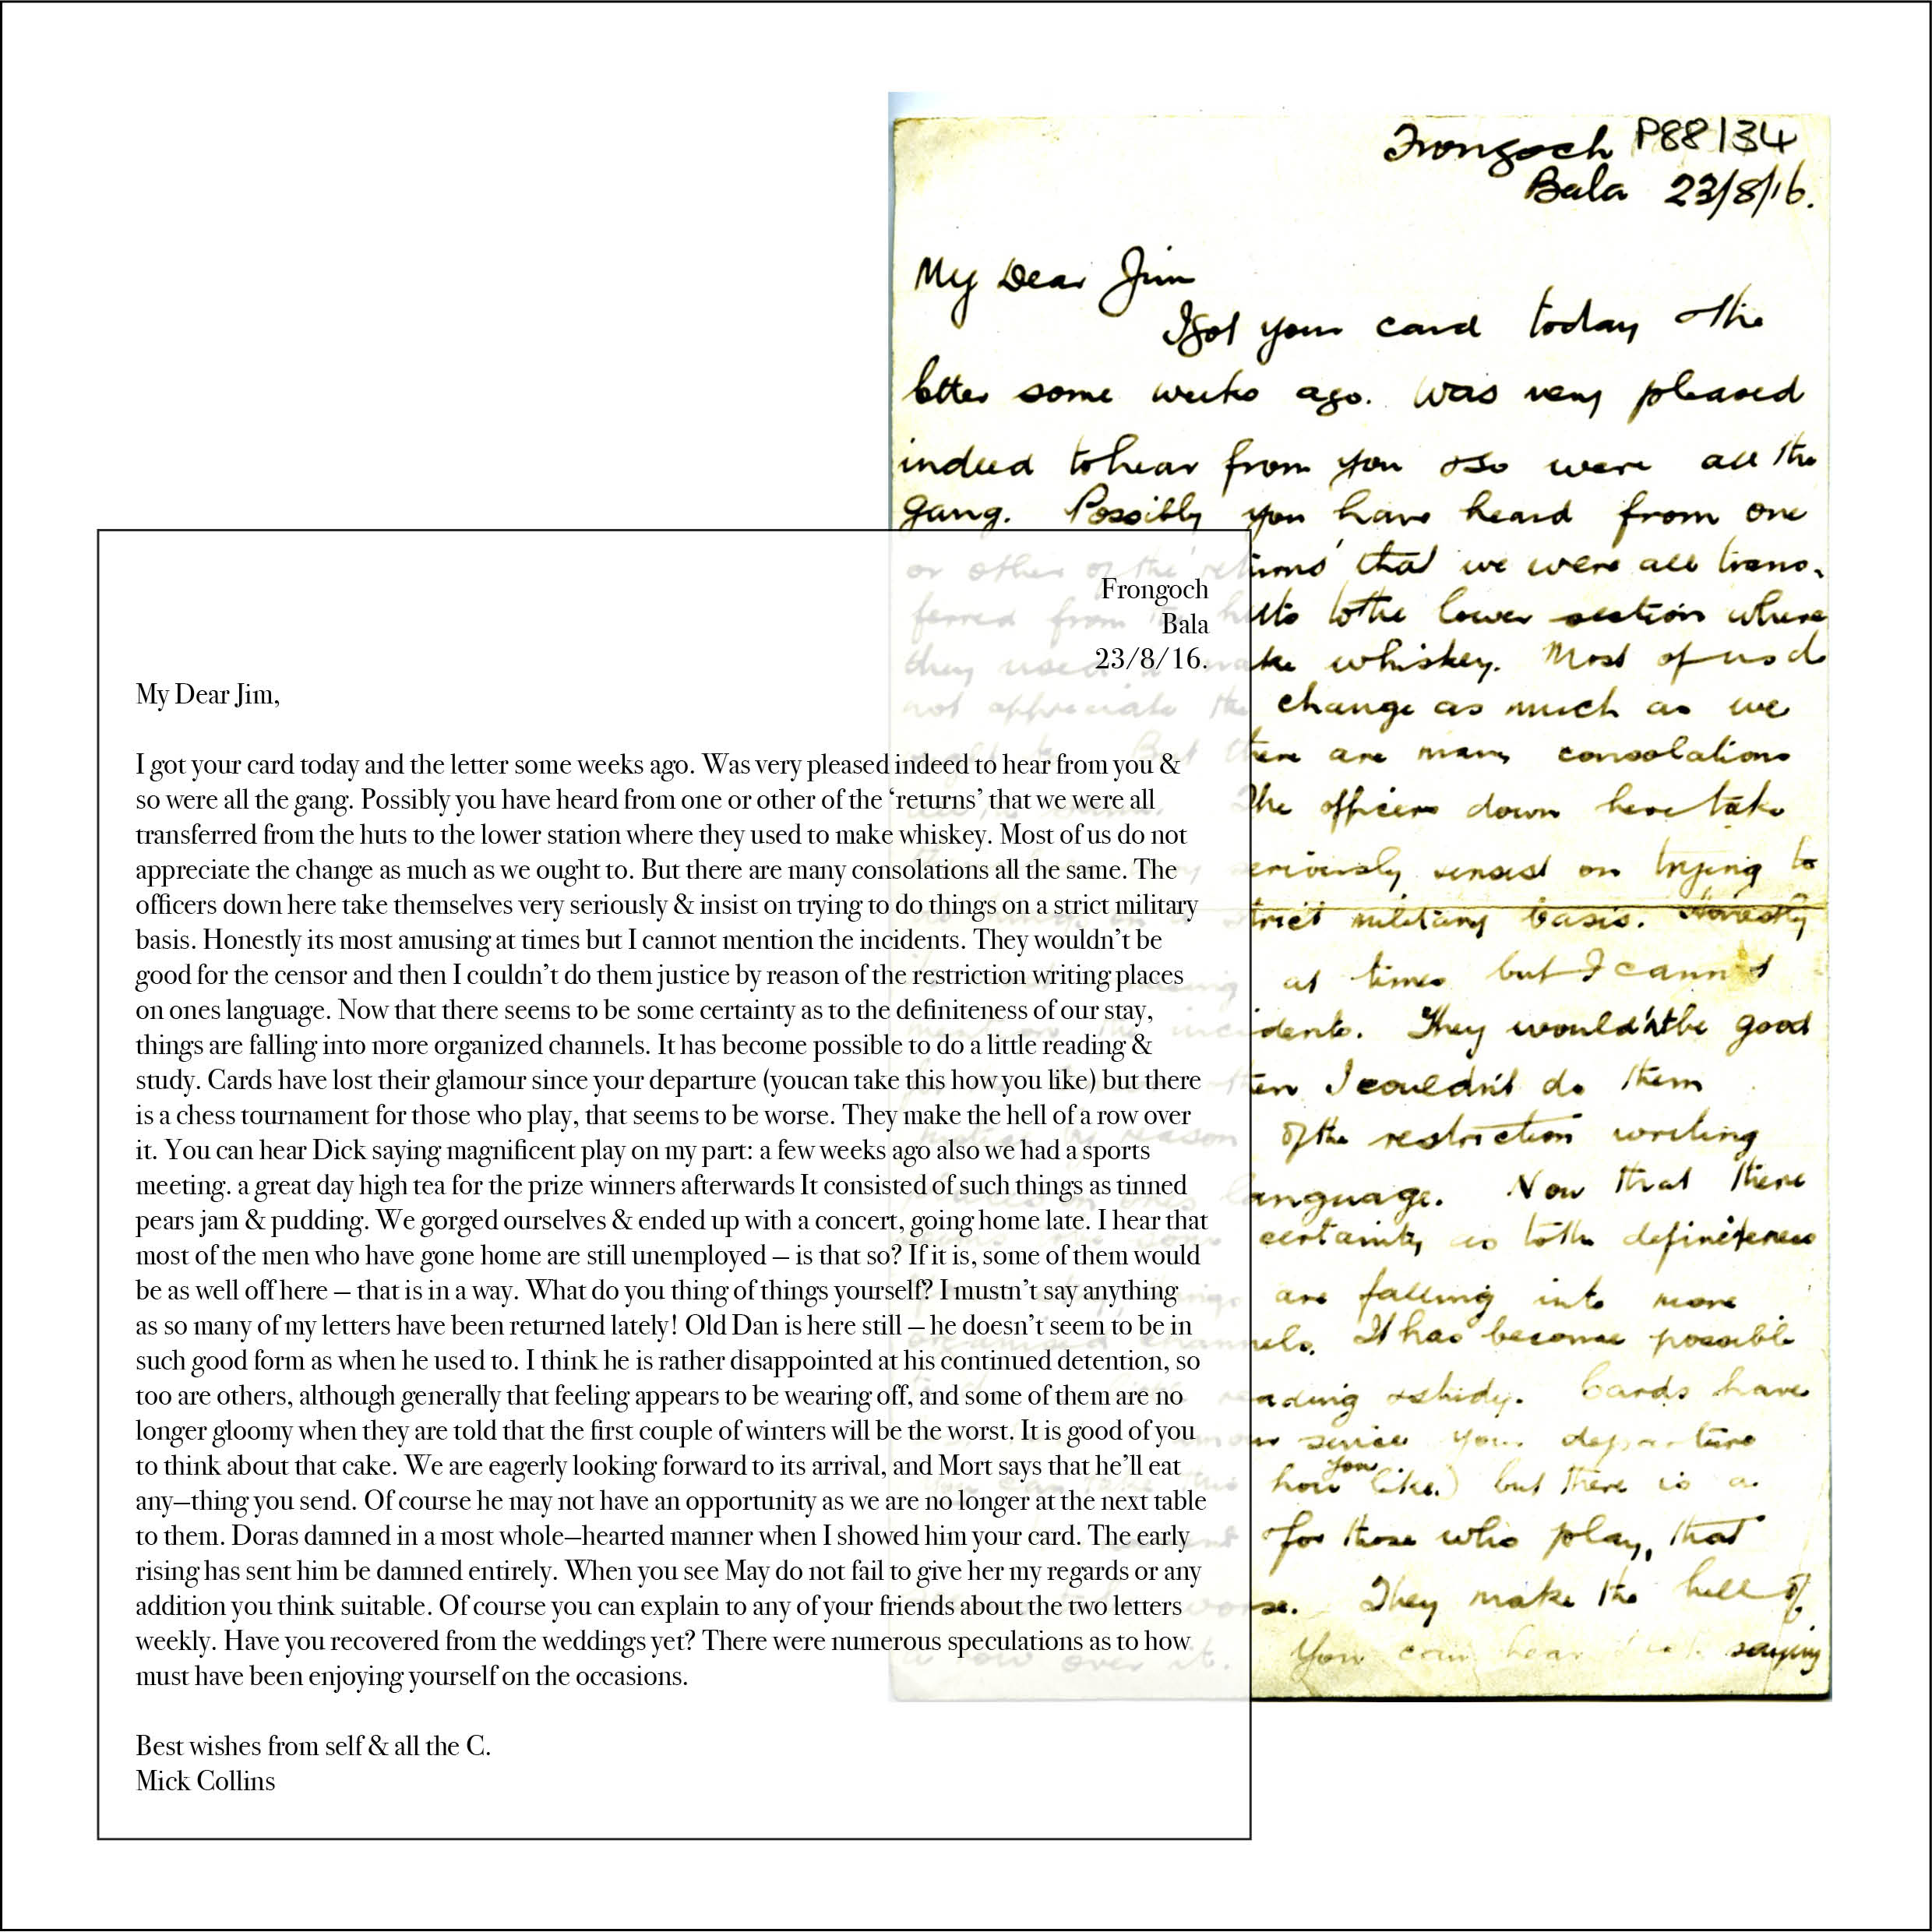 Frongoch P88/34
Bala 23/8/16.
My Dear Jim
I got your card today & the
letter some weeks ago. Was very pleased
indeed to hear from you & so were all the
gang. Possibly you have heard from one
or other of the 'returns' that we were all trans-
ferred from the huts to the lower section where
they used to make whiskey. Most of us do
not appreciate the change as much as we
ought to. But there are many consolations
The officers down here take
seriously & insist on trying to
strict military basis. Honestly
at times but I cannot
mention the incidents. They wouldn't be good
then I couldn't do them
by reason of the restriction writing
places on ones language. Now that there
seems to be some certainty as to the definiteness
things are falling into more
organised channels. It has become possible
reading & study. Cards have
since your departure
you can take this how you like.) but there is a
for those who play, that
worse. They make the hell of
a row over it. You can hear Dick saying
Frongoch
Bala
23/8/16.
My Dear Jim,
I got your card today and the letter some weeks ago. Was very pleased indeed to hear from you &
so were all the gang. Possibly you have heard from one or other of the ‘returns’ that we were all
transferred from the huts to the lower station where they used to make whiskey. Most of us do not
appreciate the change as much as we ought to. But there are many consolations all the same. The
officers down here take themselves very seriously & insist on trying to do things on a strict military
basis. Honestly its most amusing at times but I cannot mention the incidents. They wouldn’t be
good for the censor and then I couldn’t do them justice by reason of the restriction writing places
on ones language. Now that there seems to be some certainty as to the definiteness of our stay,
things are falling into more organized channels. It has become possible to do a little reading &
study. Cards have lost their glamour since your departure (youcan take this how you like) but there
is a chess tournament for those who play, that seems to be worse. They make the hell of a row over
it. You can hear Dick saying magnificent play on my part: a few weeks ago also we had a sports
meeting. a great day high tea for the prize winners afterwards It consisted of such things as tinned
pears jam & pudding. We gorged ourselves & ended up with a concert, going home late. I hear that
most of the men who have gone home are still unemployed – is that so? If it is, some of them would
be as well off here – that is in a way. What do you thing of things yourself? I mustn’t say anything
as so many of my letters have been returned lately! Old Dan is here still – he doesn’t seem to be in
such good form as when he used to. I think he is rather disappointed at his continued detention, so
too are others, although generally that feeling appears to be wearing off, and some of them are no
longer gloomy when they are told that the first couple of winters will be the worst. It is good of you
to think about that cake. We are eagerly looking forward to its arrival, and Mort says that he’ll eat
any–thing you send. Of course he may not have an opportunity as we are no longer at the next table
to them. Doras damned in a most whole–hearted manner when I showed him your card. The early
rising has sent him be damned entirely. When you see May do not fail to give her my regards or any
addition you think suitable. Of course you can explain to any of your friends about the two letters
weekly. Have you recovered from the weddings yet? There were numerous speculations as to how
must have been enjoying yourself on the occasions.
Best wishes from self & all the C.
Mick Collins